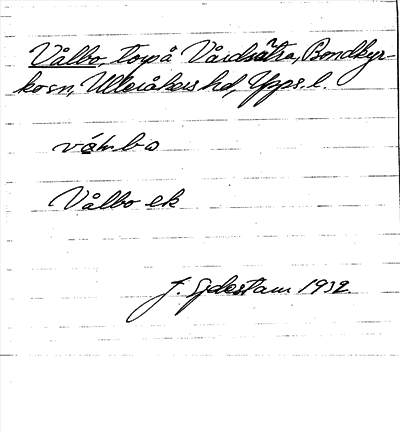 Vålbo, torp å Vårdsätra, Bondkyr-
ko sn, Ulleråkers hd, Upps. l.
Vålbo ek
F. Sjdestam 1932.